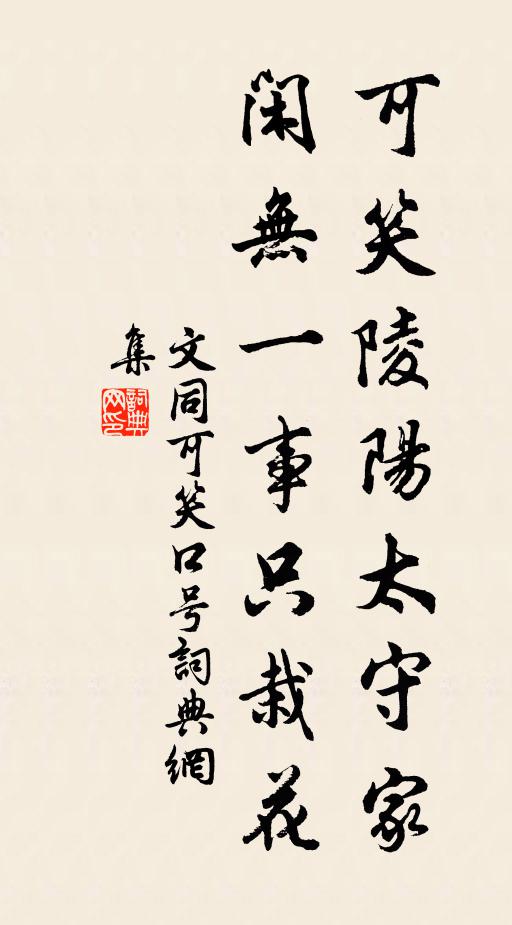 可笑陵陽太守家
閑無一事只栽花
文同可笑口号詞典網
集
詞典
网印